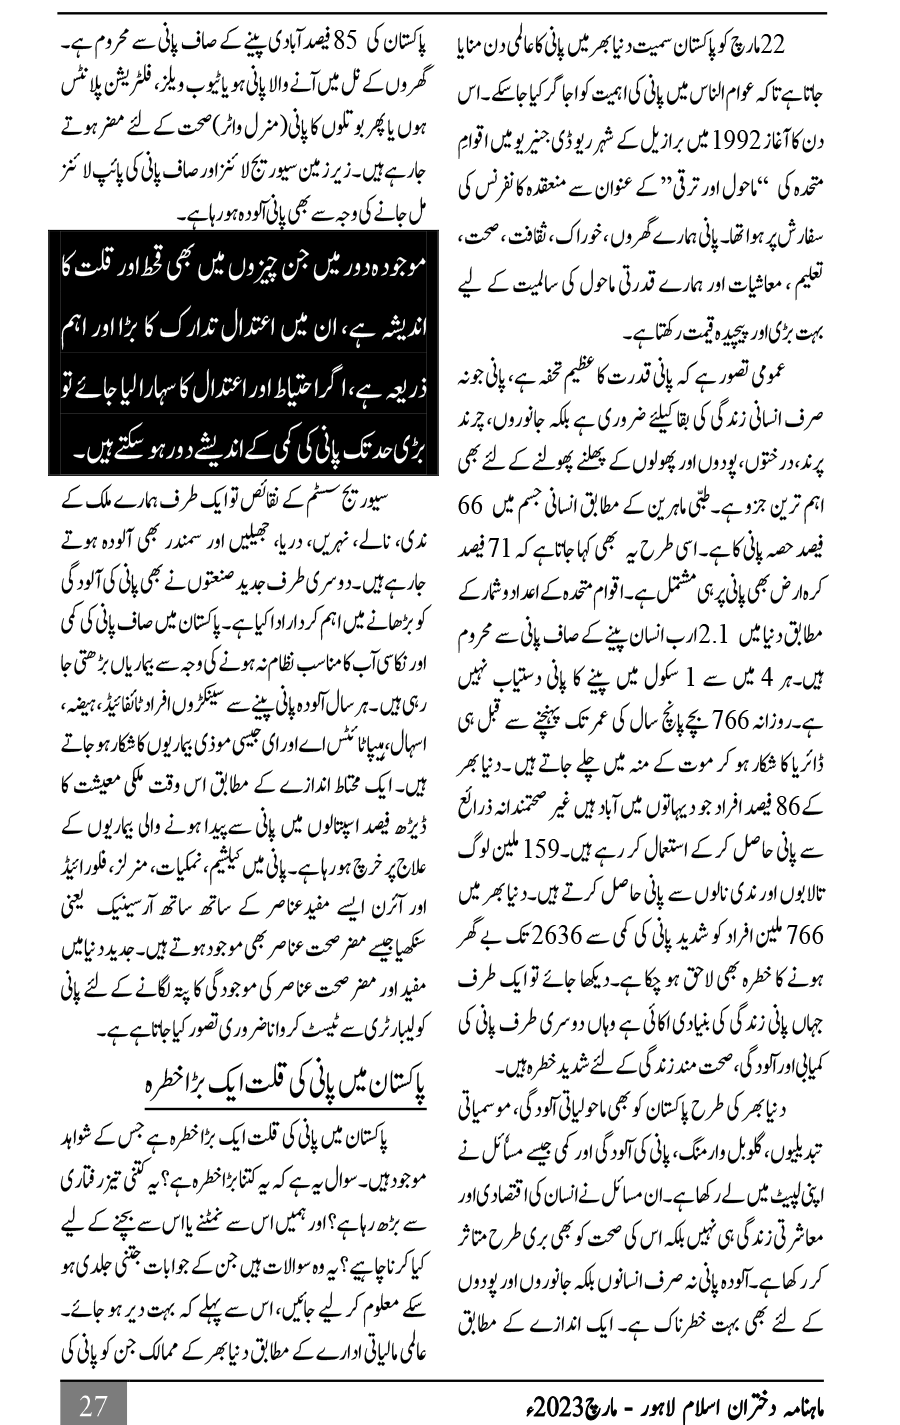 22مارچ کو پاکستان سمیت دنیا بھر میں پانی کا عالمی دن منایا
جاتا ہے تاکہ عوام الناس میں پانی کی اہمیت کو اجاگر کیا جاسکے۔ اس
دن کا آغاز 1992 میں برازیل کے شہر ریو ڈی جنیریو میں اقوامِ
متحدہ کی “ماحول اور ترقی” کے عنوان سے منعقدہ کانفرنس کی
سفارش پر ہوا تھا۔ پانی ہمارے گھروں، خوراک، ثقافت، صحت،
تعلیم ، معاشیات اور ہمارے قدرتی ماحول کی سالمیت کے لیے
بہت بڑی اور پیچیدہ قیمت رکھتا ہے۔
عمومی تصور ہے کہ پانی قدرت کا عظیم تحفہ ہے، پانی جو نہ
صرف انسانی زندگی کی بقا کیلئے ضروری ہے بلکہ جانوروں، چرند
پرند، درختوں، پودوں اور پھولوں کے پھلنے پھولنے کے لئے بھی
اہم ترین جزو ہے۔ طبی ماہرین کے مطابق انسانی جسم میں 66
فیصد حصہ پانی کا ہے۔ اسی طرح یہ بھی کہا جاتا ہے کہ 71 فیصد
کرہ ارض بھی پانی پر ہی مشتمل ہے۔ اقوام متحدہ کے اعداد و شمار کے
مطابق دنیا میں 2.1 ارب انسان پینے کے صاف پانی سے محروم
ہیں۔ ہر 4 میں سے 1 سکول میں پینے کا پانی دستیاب نہیں
ہے۔ روزانہ 766 بچے پانچ سال کی عمر تک پہنچنے سے قبل ہی
ڈائریا کا شکار ہو کر موت کے منہ میں چلے جاتے ہیں ۔ دنیا بھر
کے 86 فیصد افراد جو دیہاتوں میں آباد ہیں غیر صحتمندانہ ذرائع
سے پانی حاصل کر کے استعمال کر رہے ہیں۔ 159 ملین لوگ
تالابوں اور ندی نالوں سے پانی حاصل کرتے ہیں۔ دنیا بھر میں
766 ملین افراد کو شدید پانی کی کمی سے 2636 تک بے گھر
ہونے کا خطرہ بھی لاحق ہو چکا ہے۔ دیکھا جائے تو ایک طرف
جہاں پانی زندگی کی بنیادی اکائی ہے وہاں دوسری طرف پانی کی
کمیابی اور آلودگی، صحت مند زندگی کے لئے شدید خطرہ ہیں۔
دنیا بھر کی طرح پاکستان کو بھی ماحولیاتی آلودگی، موسمیاتی
تبدیلیوں، گلوبل وارمنگ، پانی کی آلودگی اور کمی جیسے مسائل نے
اپنی لپیٹ میں لے رکھا ہے۔ ان مسائل نے انسان کی اقتصادی اور
معاشرتی زندگی ہی نہیں بلکہ اس کی صحت کو بھی بری طرح متاثر
کر رکھا ہے۔ آلودہ پانی نہ صرف انسانوں بلکہ جانوروں اور پودوں
کے لئے بھی بہت خطرناک ہے۔ ایک اندازے کے مطابق
پاکستان کی 85 فیصد آبادی پینے کے صاف پانی سے محروم ہے۔
گھروں کے نل میں آنے والا پانی ہو یا ٹیوب ویلز، فلٹریشن پلانٹس
ہوں یا پھر بوتلوں کا پانی (منرل واٹر) صحت کے لئے مضر ہوتے
جا رہے ہیں۔ زیر زمین سیوریج لائنز اور صاف پانی کی پائپ لائنز
مل جانے کی وجہ سے بھی پانی آلودہ ہو رہا ہے۔
موجودہ دور میں جن چیزوں میں بھی قحط اور قلت کا
اندیشہ ہے، ان میں اعتدال تدارک کا بڑا اور اہم
ذریعہ ہے، اگر احتیاط اور اعتدال کا سہارا لیا جائے تو
بڑی حد تک پانی کی کمی کے اندیشے دور ہو سکتے ہیں۔
سیوریج سسٹم کے نقائص تو ایک طرف ہمارے ملک کے
ندی، نالے، نہریں، دریا، جھیلیں اور سمندر بھی آلودہ ہوتے
جا رہے ہیں۔ دوسری طرف جدید صنعتوں نے بھی پانی کی آلودگی
کو بڑھانے میں اہم کردار ادا کیا ہے۔ پاکستان میں صاف پانی کی کمی
اور نکاسی آب کا مناسب نظام نہ ہونے کی وجہ سے بیماریاں بڑھتی جا
رہی ہیں۔ ہر سال آلودہ پانی پینے سے سینکڑوں افراد ٹائفائیڈ، ہیضہ،
اسہال، ہیپاٹائٹس اے اور ای جیسی موذی بیماریوں کا شکار ہو جاتے
ہیں۔ ایک محتاط اندازے کے مطابق اس وقت ملکی معیشت کا
ڈیڑھ فیصد اسپتالوں میں پانی سے پیدا ہونے والی بیماریوں کے
علاج پر خرچ ہو رہا ہے۔ پانی میں کیلشیم، نمکیات، منرلز، فلورائیڈ
اور آئرن ایسے مفید عناصر کے ساتھ ساتھ آرسینیک یعنی
سنکھیا جیسے مضر صحت عناصر بھی موجود ہوتے ہیں۔ جدید دنیا میں
مفید اور مضر صحت عناصر کی موجودگی کا پتہ لگانے کے لئے پانی
کو لیبارٹری سے ٹیسٹ کروانا ضروری تصور کیا جاتا ہے ہے۔
پاکستان میں پانی کی قلت ایک بڑا خطرہ
پاکستان میں پانی کی قلت ایک بڑا خطرہ ہے جس کے شواہد
موجود ہیں۔ سوال یہ ہے کہ یہ کتنا بڑا خطرہ ہے؟ یہ کتنی تیز رفتاری
سے بڑھ رہا ہے؟ اور ہمیں اس سے نمٹنے یا اس سے بچنے کے لیے
کیا کرنا چاہیے؟ یہ وہ سوالات ہیں جن کے جوابات جتنی جلدی ہو
سکے معلوم کر لیے جائیں، اس سے پہلے کہ بہت دیر ہو جائے۔
عالمی مالیاتی ادارے کے مطابق دنیا بھر کے ممالک جن کو پانی کی
ماہنامہ دختران اسلام لاہور - مارچ 2023ء
27